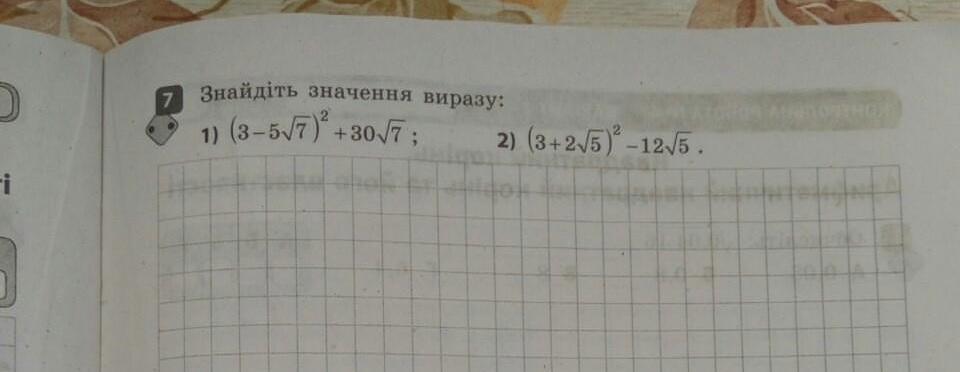 7 Знайдіть значення виразу:
1) (3−5√7)² +30√7 ; 2) (3+2√5)² −12√5 .
і